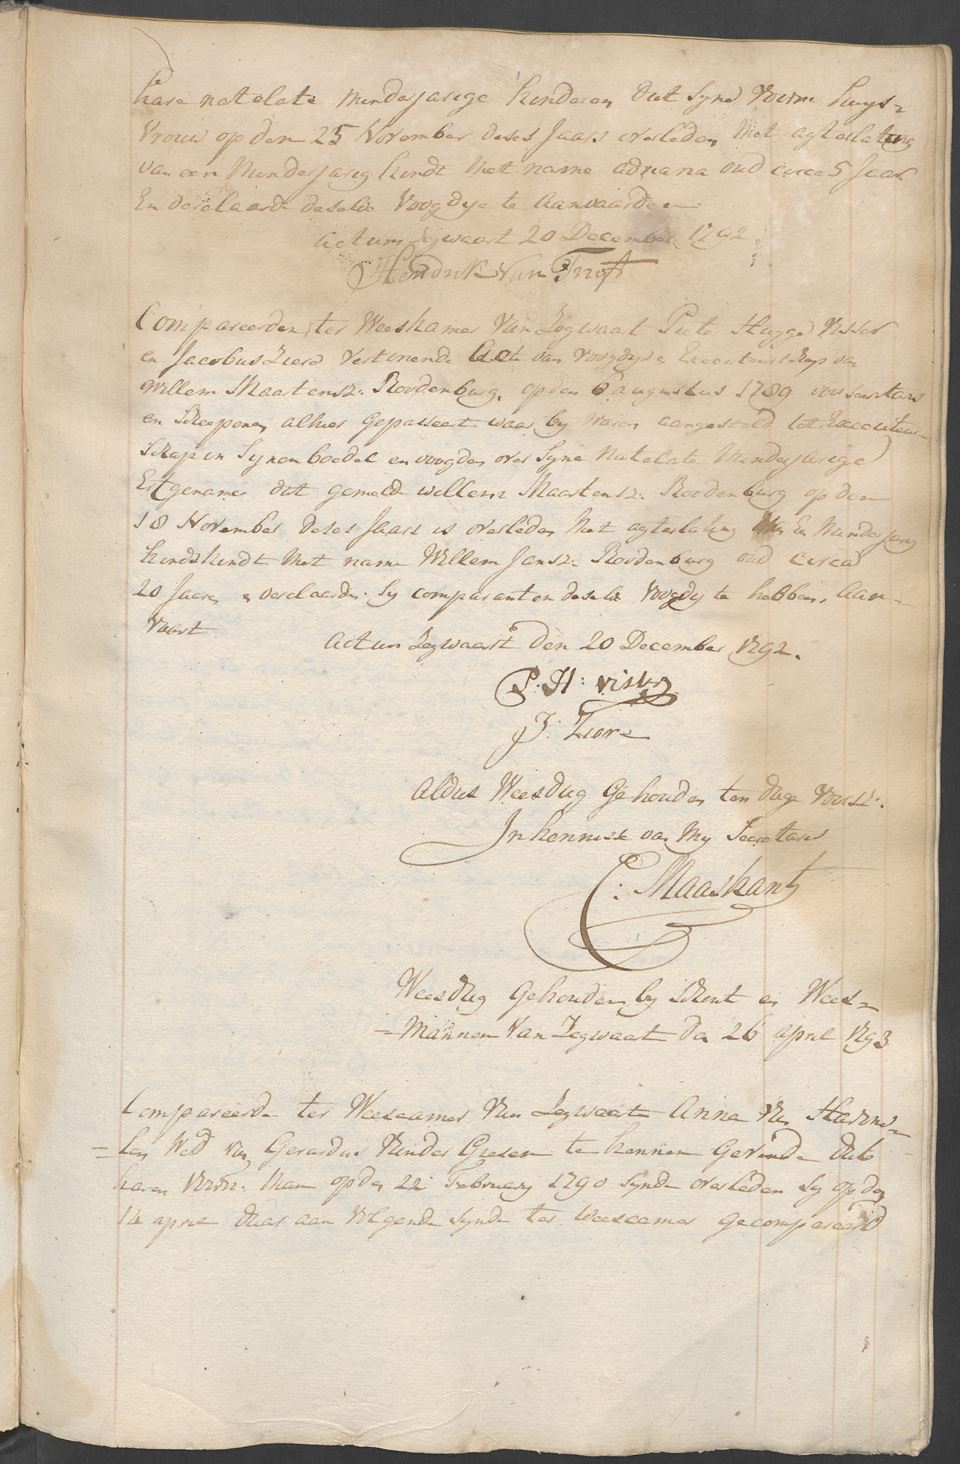 hare natelate minderjarige kinderen dat syne voorn: huys=
vrouw op den 25 November deses Jaars overleden Met agterlating
van een Minderjarig kindt Met name adriana oud circa 5 Jaar
En verclaarde deselve Voogdye te Aanvaarden
Actum Zegwaart 20 December 1792
Hendrik van Trigt
Compareerden ter Weeskamer Van Zegwaart Piete Hugge Visser
en Jacobus Ziere Vertonende Acte van voogdye Executeurschap van
Willem Maartensz: Roodenburg, op den 6 augustus 1789 voor secretaris
en Schepenen alhier Gepasseert waar by waren aangesteld tot Executeur=
Schap in Synen boedel en voogden over Syne Natelate Minderjarige
Erfgenamen dat gemelde willem Maartensz: Roodenburg op den
18 November deses Jaars is overleden Met agterlating van En Minderjarig
kindskindt Met name Willem Jansz: Roodenburg oud circa
20 Jaaren en verclaarde Sy comparanten deselve Voogdy te hebben Aan=
Vaart
Actum Zegwaart den 20 December 1792.
P. H: Visser
J: Ziere
Aldus Weesdag Gehouden ten dage Voorsz:
In kennisse van My Secretaris
C: Maaskant
Weesdag Gehouden by Schout en Wees=
=Mannen Van Zegwaart den 26 april 1793
Compareerde ter Weescamer Van Zegwaart Anna van
Wed van Gerardus Vander Giesen te kennen Gevende dat
haren voorn: Man op den 22 February 1790 synde overleden sy op den
14 april daar aan volgende synde ter weescamer gecompareerd